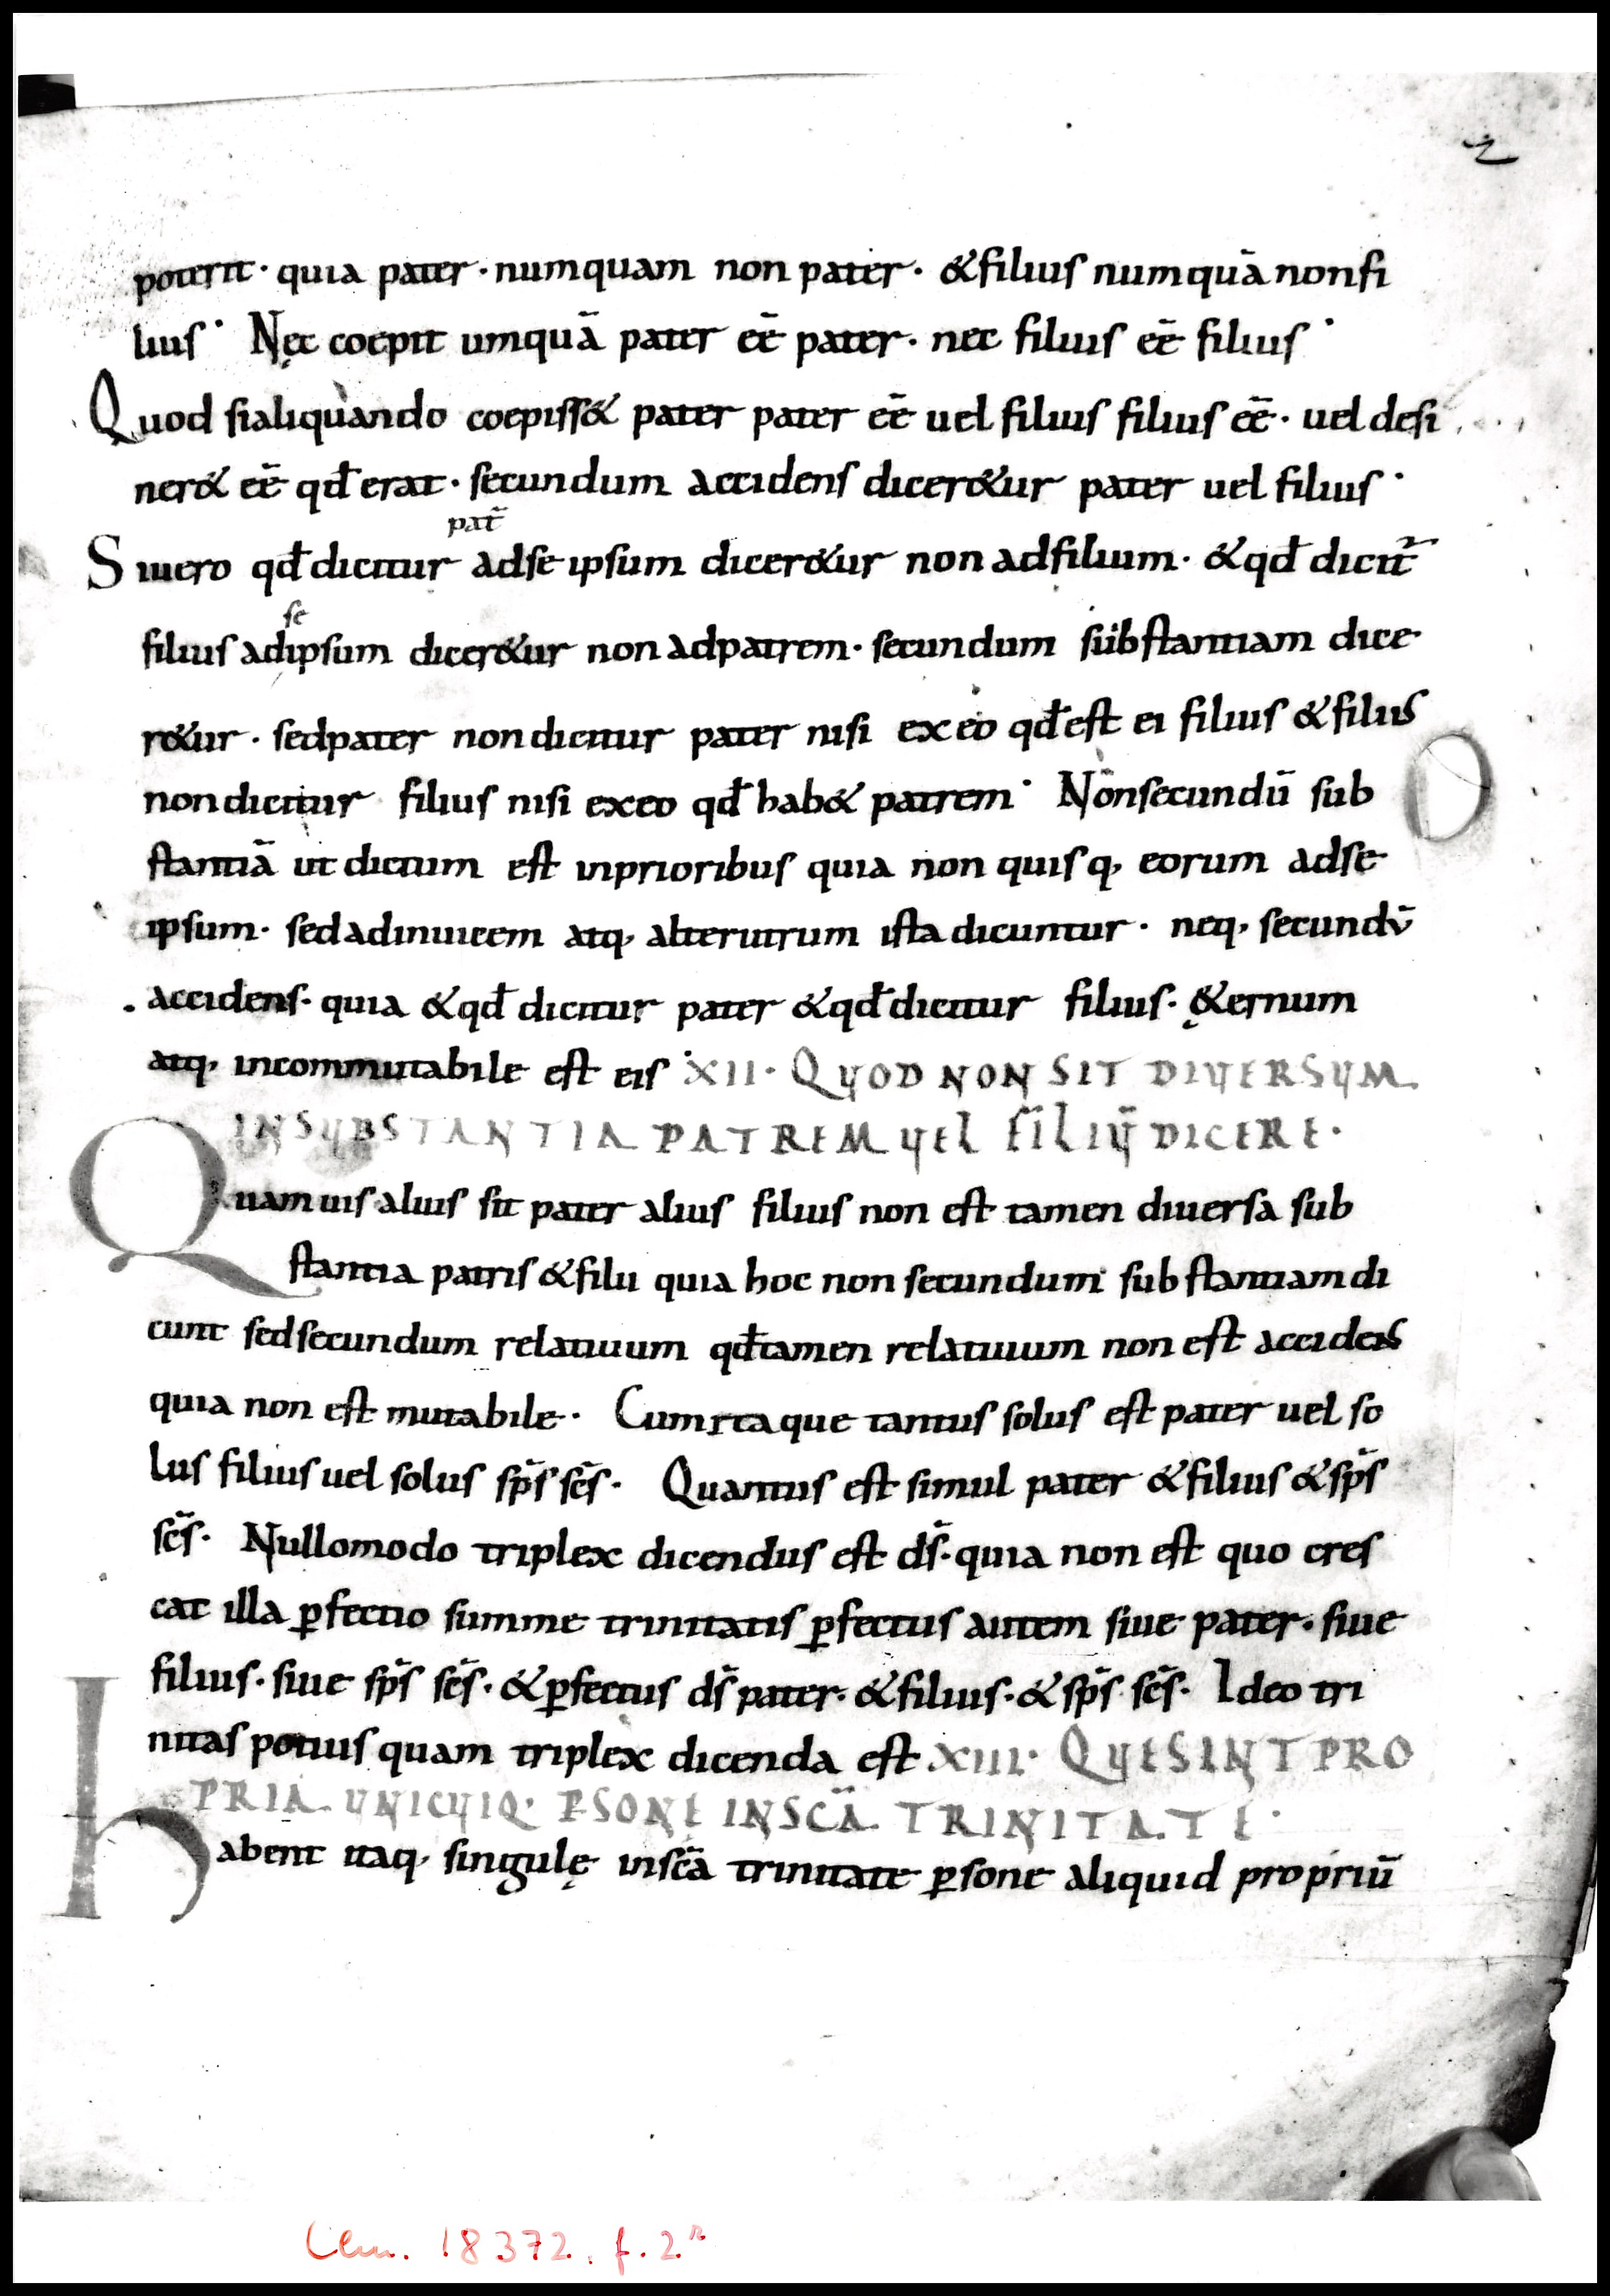 2
poterit · quia pater · numquam non pater · & filius numquā non fi
lius · Nęc coepit umquā pater eē pater · nec filius eē filius ·
Quod si aliquando coepiss& pater pater eē uel filius filius eē · uel desi
ner& eē qđ erat · secundum accidens dicer&ur pater uel filius ·
pat̄
Si uero qđ dicitur ad se ipsum dicer&ur non ad filium · & qđ dicit᷑
se
filius ad ipsum dicer&ur non ad patrem · secundum substantiam dice
r&ur · sed pater non dicitur pater nisi ex eo qđ est ei filius & filius
non dicitur filius nisi ex eo qđ hab& patrem · Non secundū sub
stantiā ut dictum est in prioribus quia non quisq, eorum ad se
ipsum · sed ad inuicem atq, alterutrum ista dicuntur · neq, secundū
accidens · quia & qđ dicitur pater & qđ dicitur filius · &̨ernum
atq, incommutabile est eis · XII · QUOD NON SIT DIUERSUM
IN SUBSTANTIA PATREM UEL FILIŪ DICERE ·
Quamuis alius sit pater alius filius non est tamen diuersa sub
stantia patris & filii quia hoc non secundum substantiam di
cunt sed secundum relatiuum qđ tamen relatiuum non est accidens
quia non est mutabile · Cum itaque tantus solus est pater uel so
lus filius uel solus sp̄s sc̄s · Quantus est simul pater & filius & sp̄s
sc̄s · Nullomodo triplex dicendus est ds̄ · quia non est quo cres
cat illa ꝑfectio summe trinitatis ꝑfectus autem siue pater · siue
filius · siue sp̄s sc̄s · & ꝑfectus ds̄ pater · & filius · & sp̄s sc̄s · Ideo tri
nitas potius quam triplex dicenda est XIII · QUE SINT PRO
PRIA UNICUIQ· PSONE IN SCĀ TRINITATE ·
Habent itaq, singulę in scā trinitate ꝑsone aliquid propriū
Clm. 18372. f. 2r